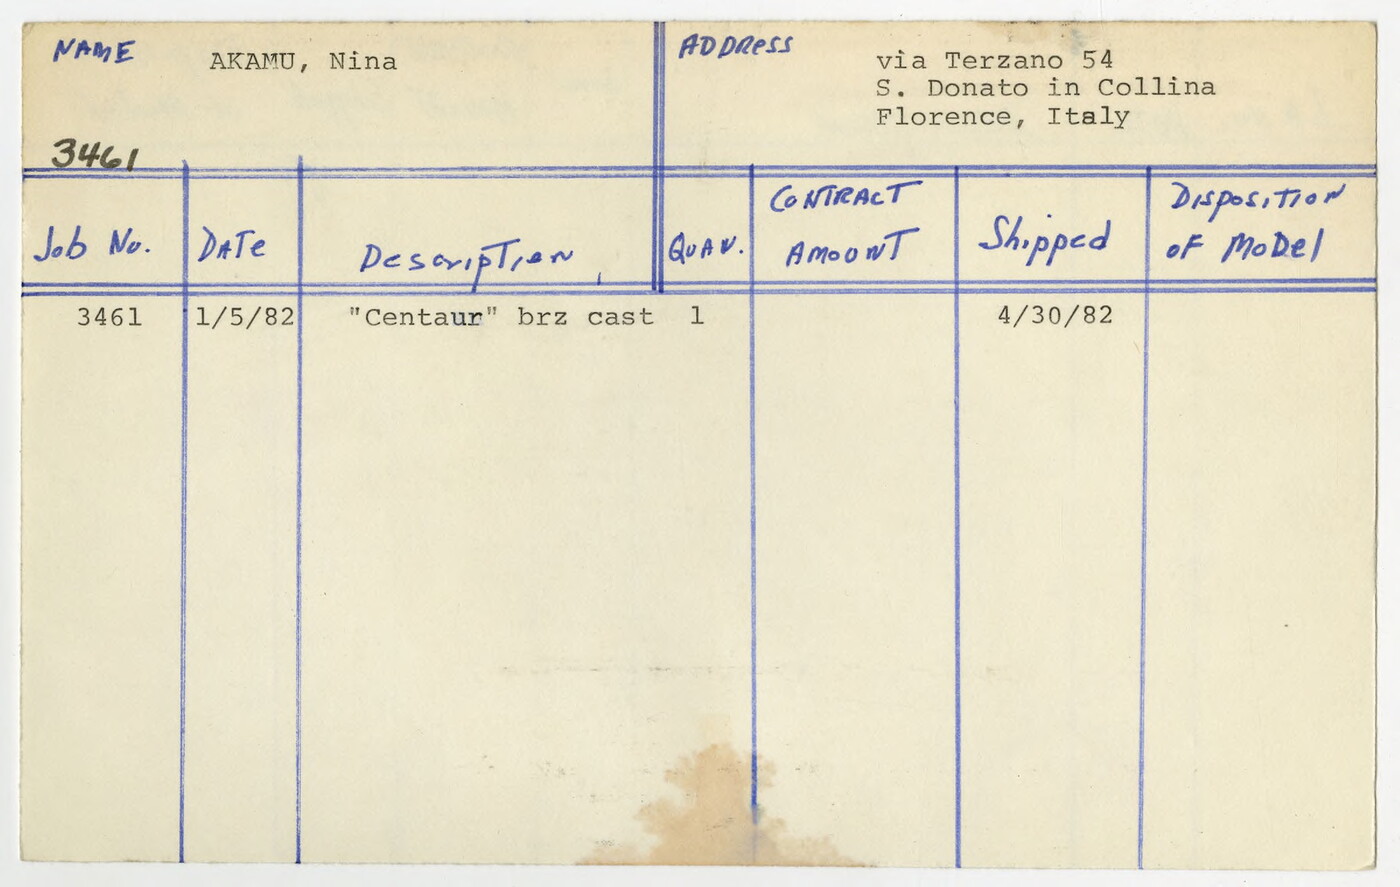 NAME AKAMU, Nina
ADDRESS via Terzano 54
S. Donato in Collina
Florence, Italy
3461
Job No. DATE Description QUAN. CONTRACT AMOUNT Shipped DISPOSITION OF MODEL
3461 1/5/82 "Centaur" brz cast 1 4/30/82